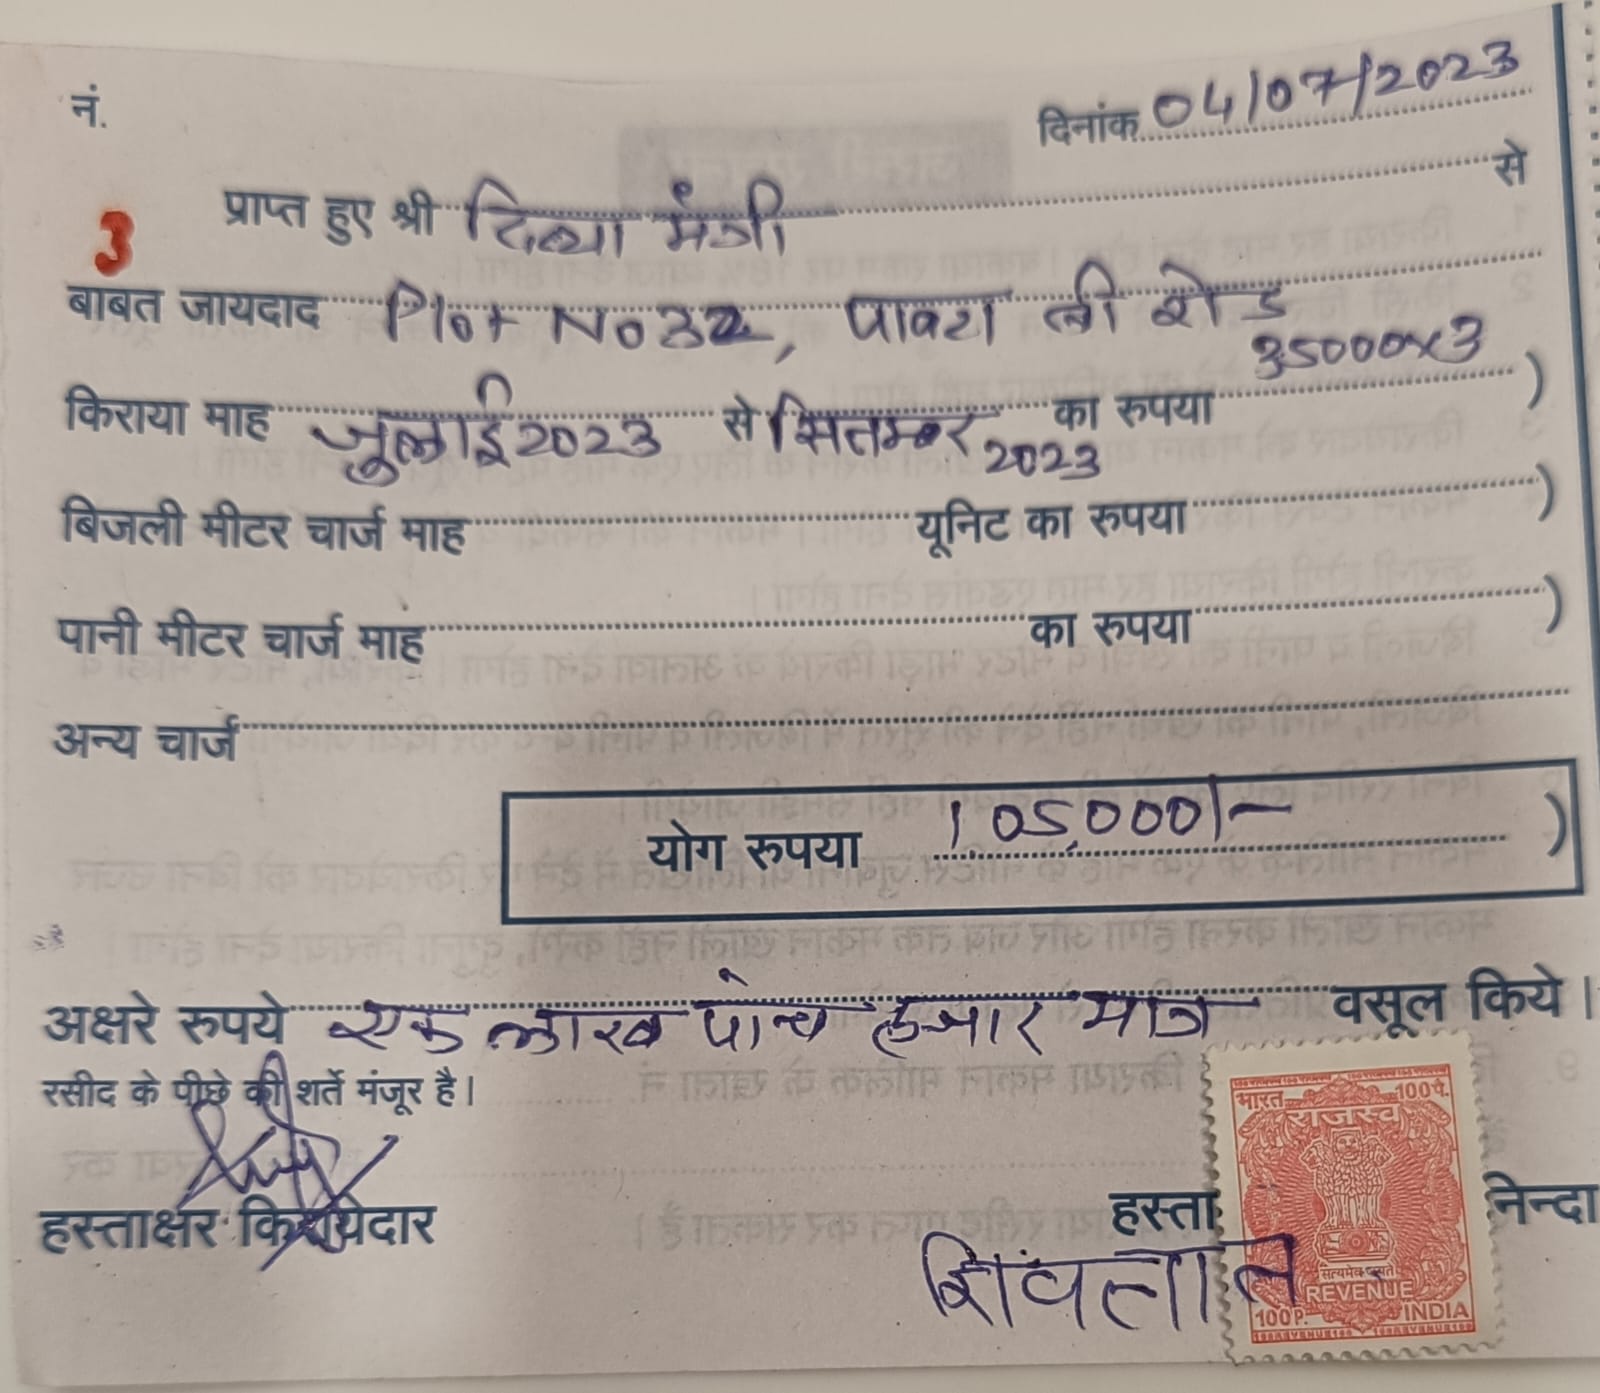 नं.
दिनांक 04/07/2023
3
प्राप्त हुए श्री दिव्या मंत्री से
बाबत जायदाद Plot No 32, पावटा बी रोड
किराया माह जुलाई 2023 से सितम्बर 2023 का रुपया 35000x3 )
बिजली मीटर चार्ज माह यूनिट का रुपया )
पानी मीटर चार्ज माह का रुपया )
अन्य चार्ज
योग रुपया 1,05,000/- )
अक्षरे रुपये एक लाख पाँच हजार मात्र वसूल किये।
रसीद के पीछे की शर्ते मंजूर है।
हस्ताक्षर किरायेदार
हस्ता निन्दा
शिवलाल
भारत 100पै.
राजस्व
सत्यमेव जयते
REVENUE
100P. INDIA